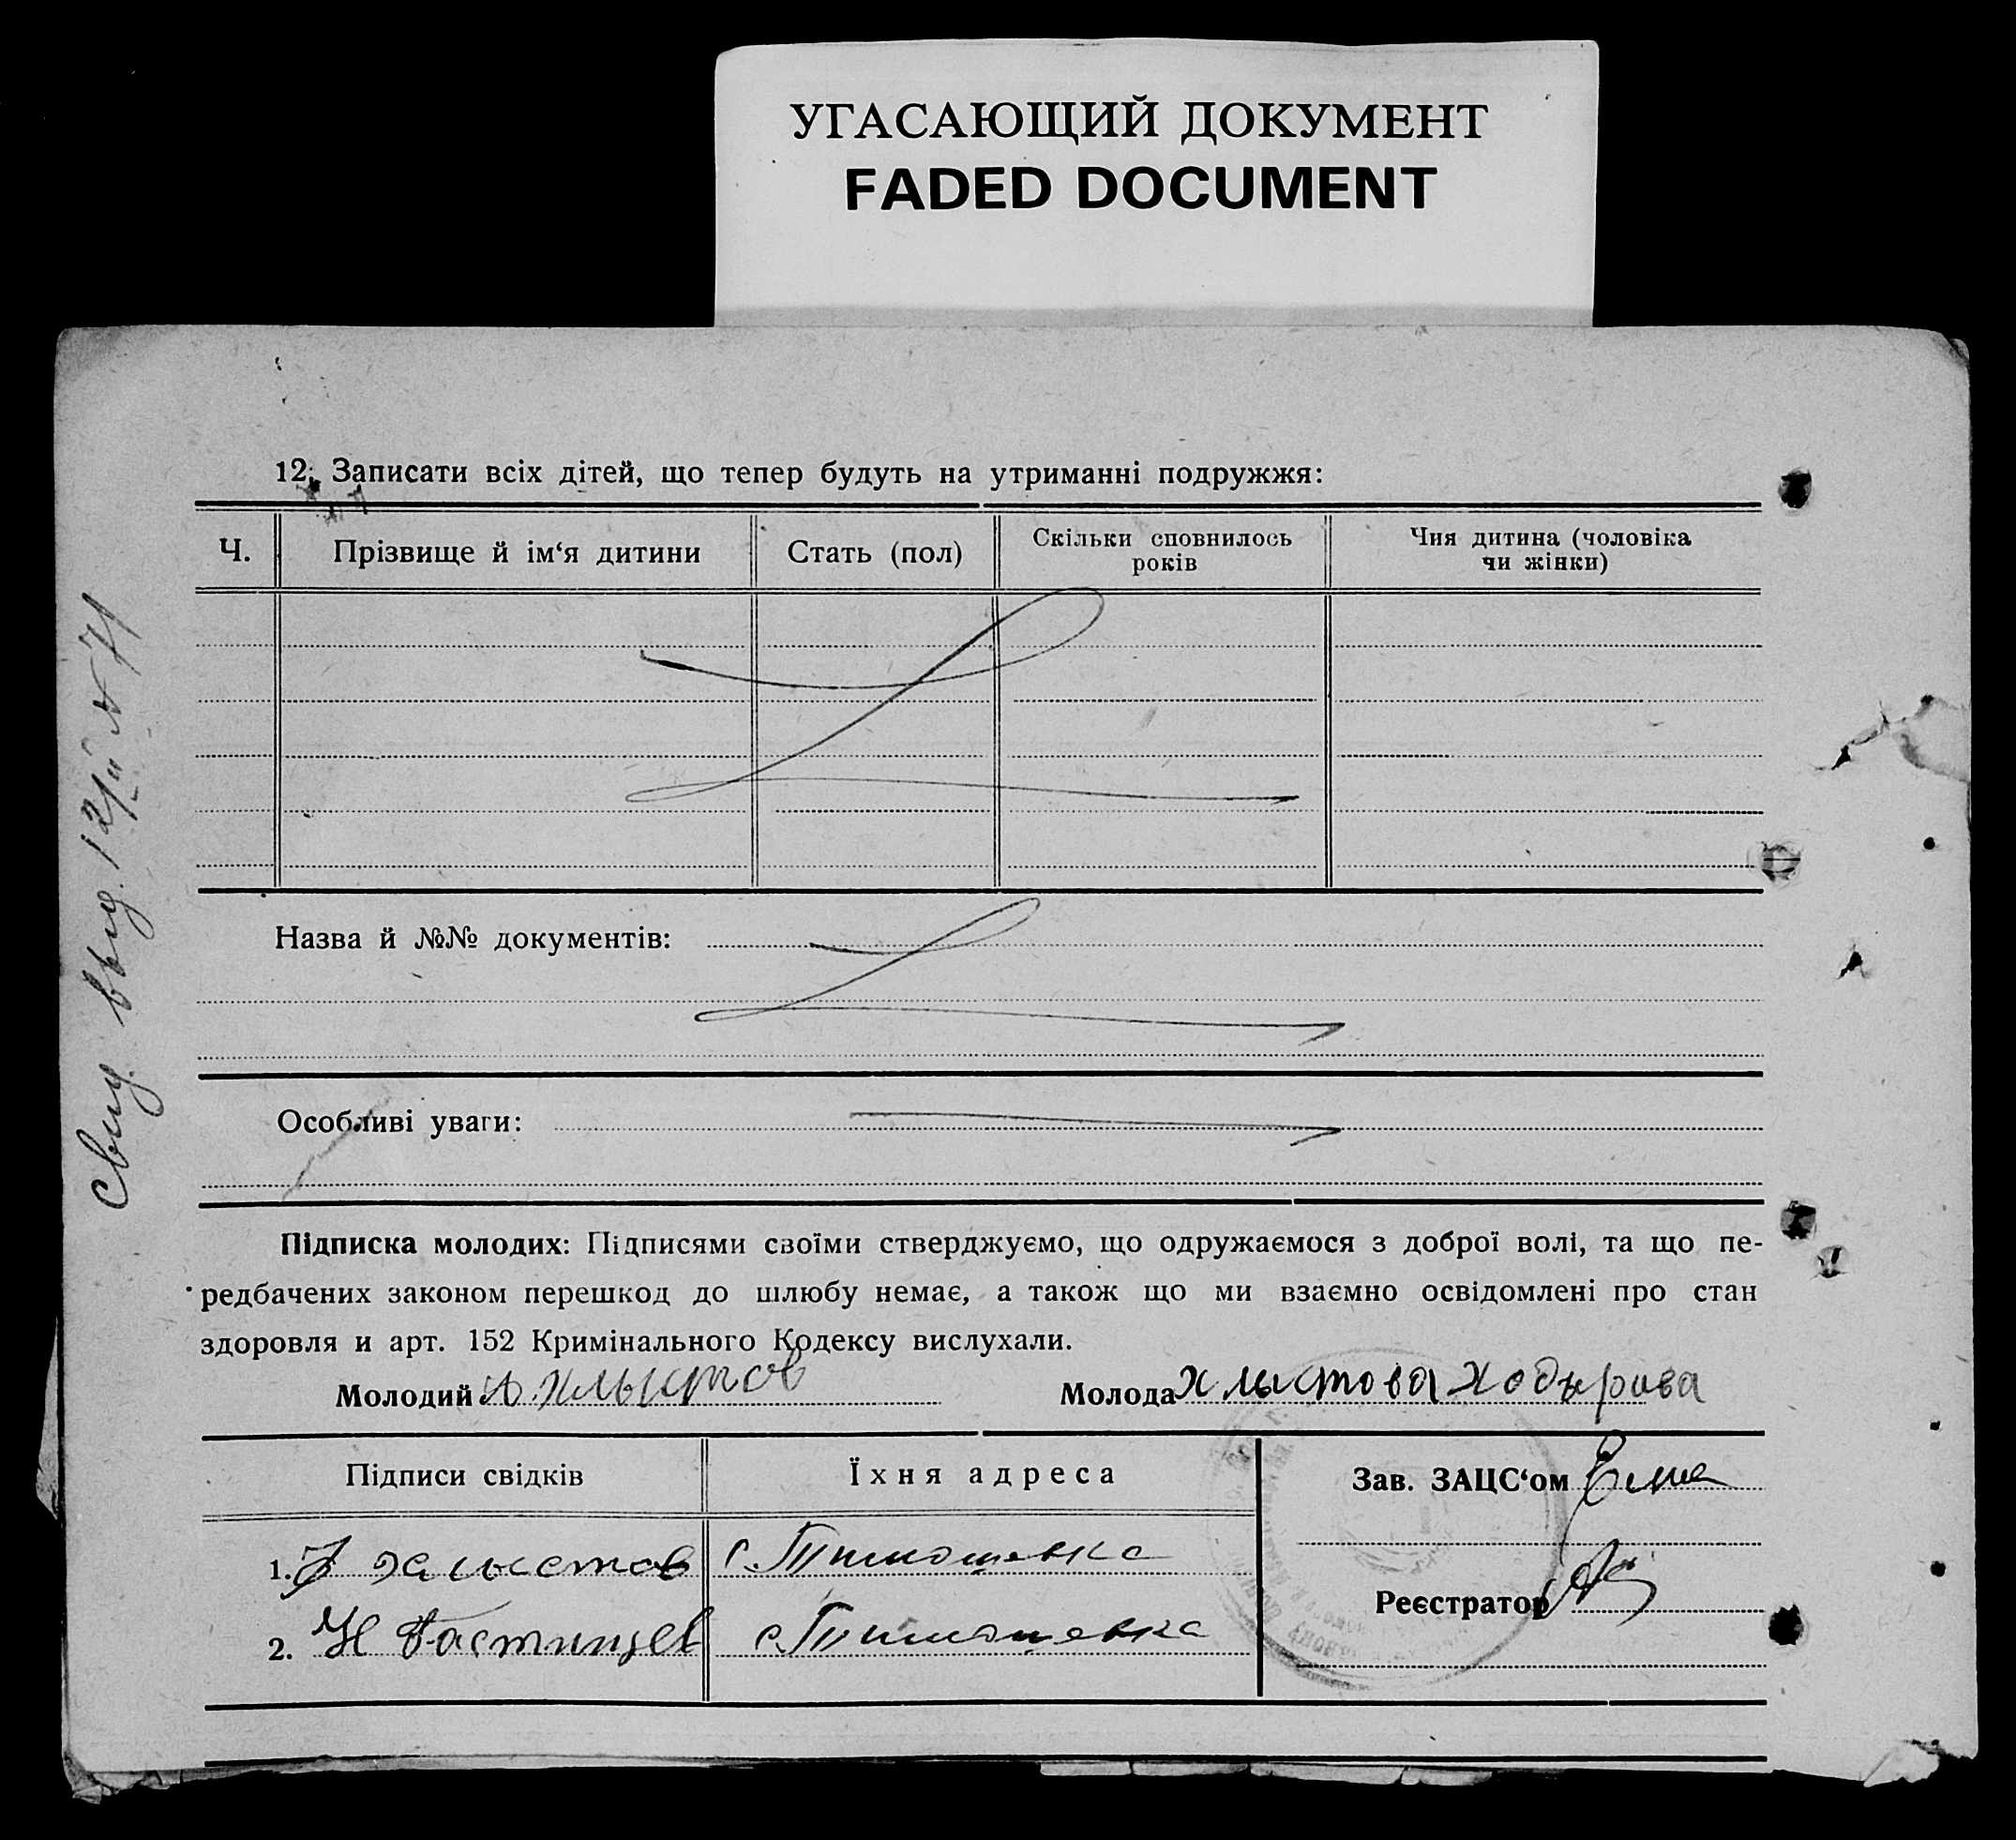 УГАСАЮЩИЙ ДОКУМЕНТ
FADED DOCUMENT
12. Записати всіх дітей, що тепер будуть на утриманні подружжя:
Ч. Прізвище й ім‘я дитини Стать (пол) Скільки сповнилось років Чия дитина (чоловіка чи жінки)
Свид. выд. 12/II N 71
Назва й №№ документів:
Особливі уваги:
Підписка молодих: Підписями своїми стверджуємо, що одружаємося з доброї волі, та що пе-
редбачених законом перешкод до шлюбу немає, а також що ми взаємно освідомлені про стан
здоровля и арт. 152 Кримінального Кодексу вислухали.
Молодий Хлыстов Молода Хлыстова Ходырева
Підписи свідків Їхня адреса Зав. ЗАЦС‘ом
1. Хлыстов с. Тимошевка
Реєстратор
2. с. Тимошевка